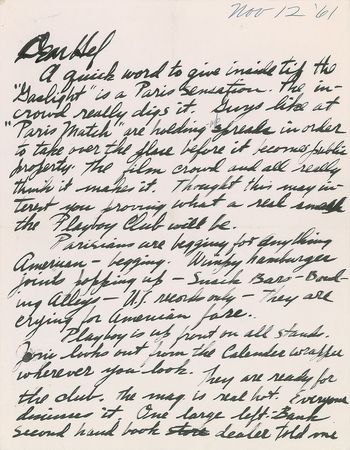 Nov 12 '61
Dear Hef
A quick word to give inside tip the
"Gaslight" is a Paris Sensation. The in-
crowd really digs it. Guys like at
"Paris Match" are holding spreads in order
to take over the place before it becomes public
property. The film crowd and all really
think it makes it. Thought this may in-
terest you proving what a real smash
the Playboy Club will be.
Parisians are begging for anything
American - begging. Wimpy hamburger
joints popping up - Snack Bars - Bowl-
ing Alleys - U.S. records only - They are
crying for American fare.
Playboy is up front on all stands.
looks out from the Calendar wrapper
wherever you look. They are ready for
the club. the mag is real hot. Everyone
discusses it. One large left-Bank
second hand book store dealer told me